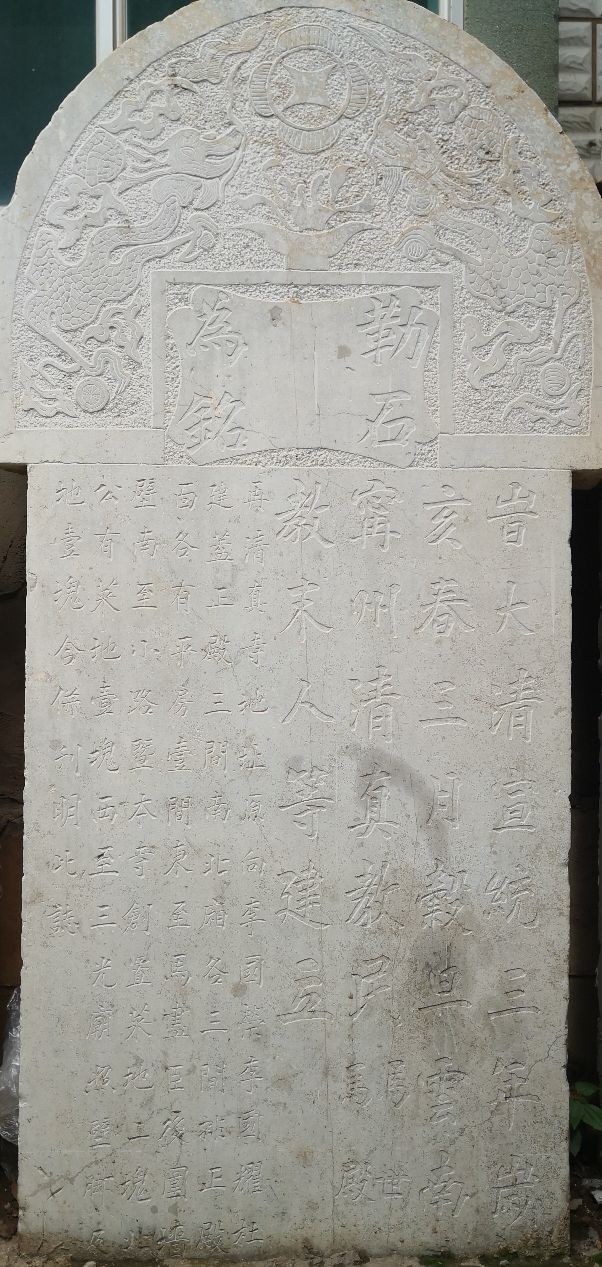 勒石
為銘
旹大清宣統三年歲
亥春三月穀旦雲南
甯州清真教馬世
馬殿
教末人等建立
再清真寺地址原向李國榮李國耀杜
建蓋正殿三間南北廂各三間正殿
西各有平房壹間東至馬臣後圍墻
壁南至小路暨本寺創置菜地塊北
公有菜地壹塊西至三光廟照壁脚
地壹塊今刊明此誌